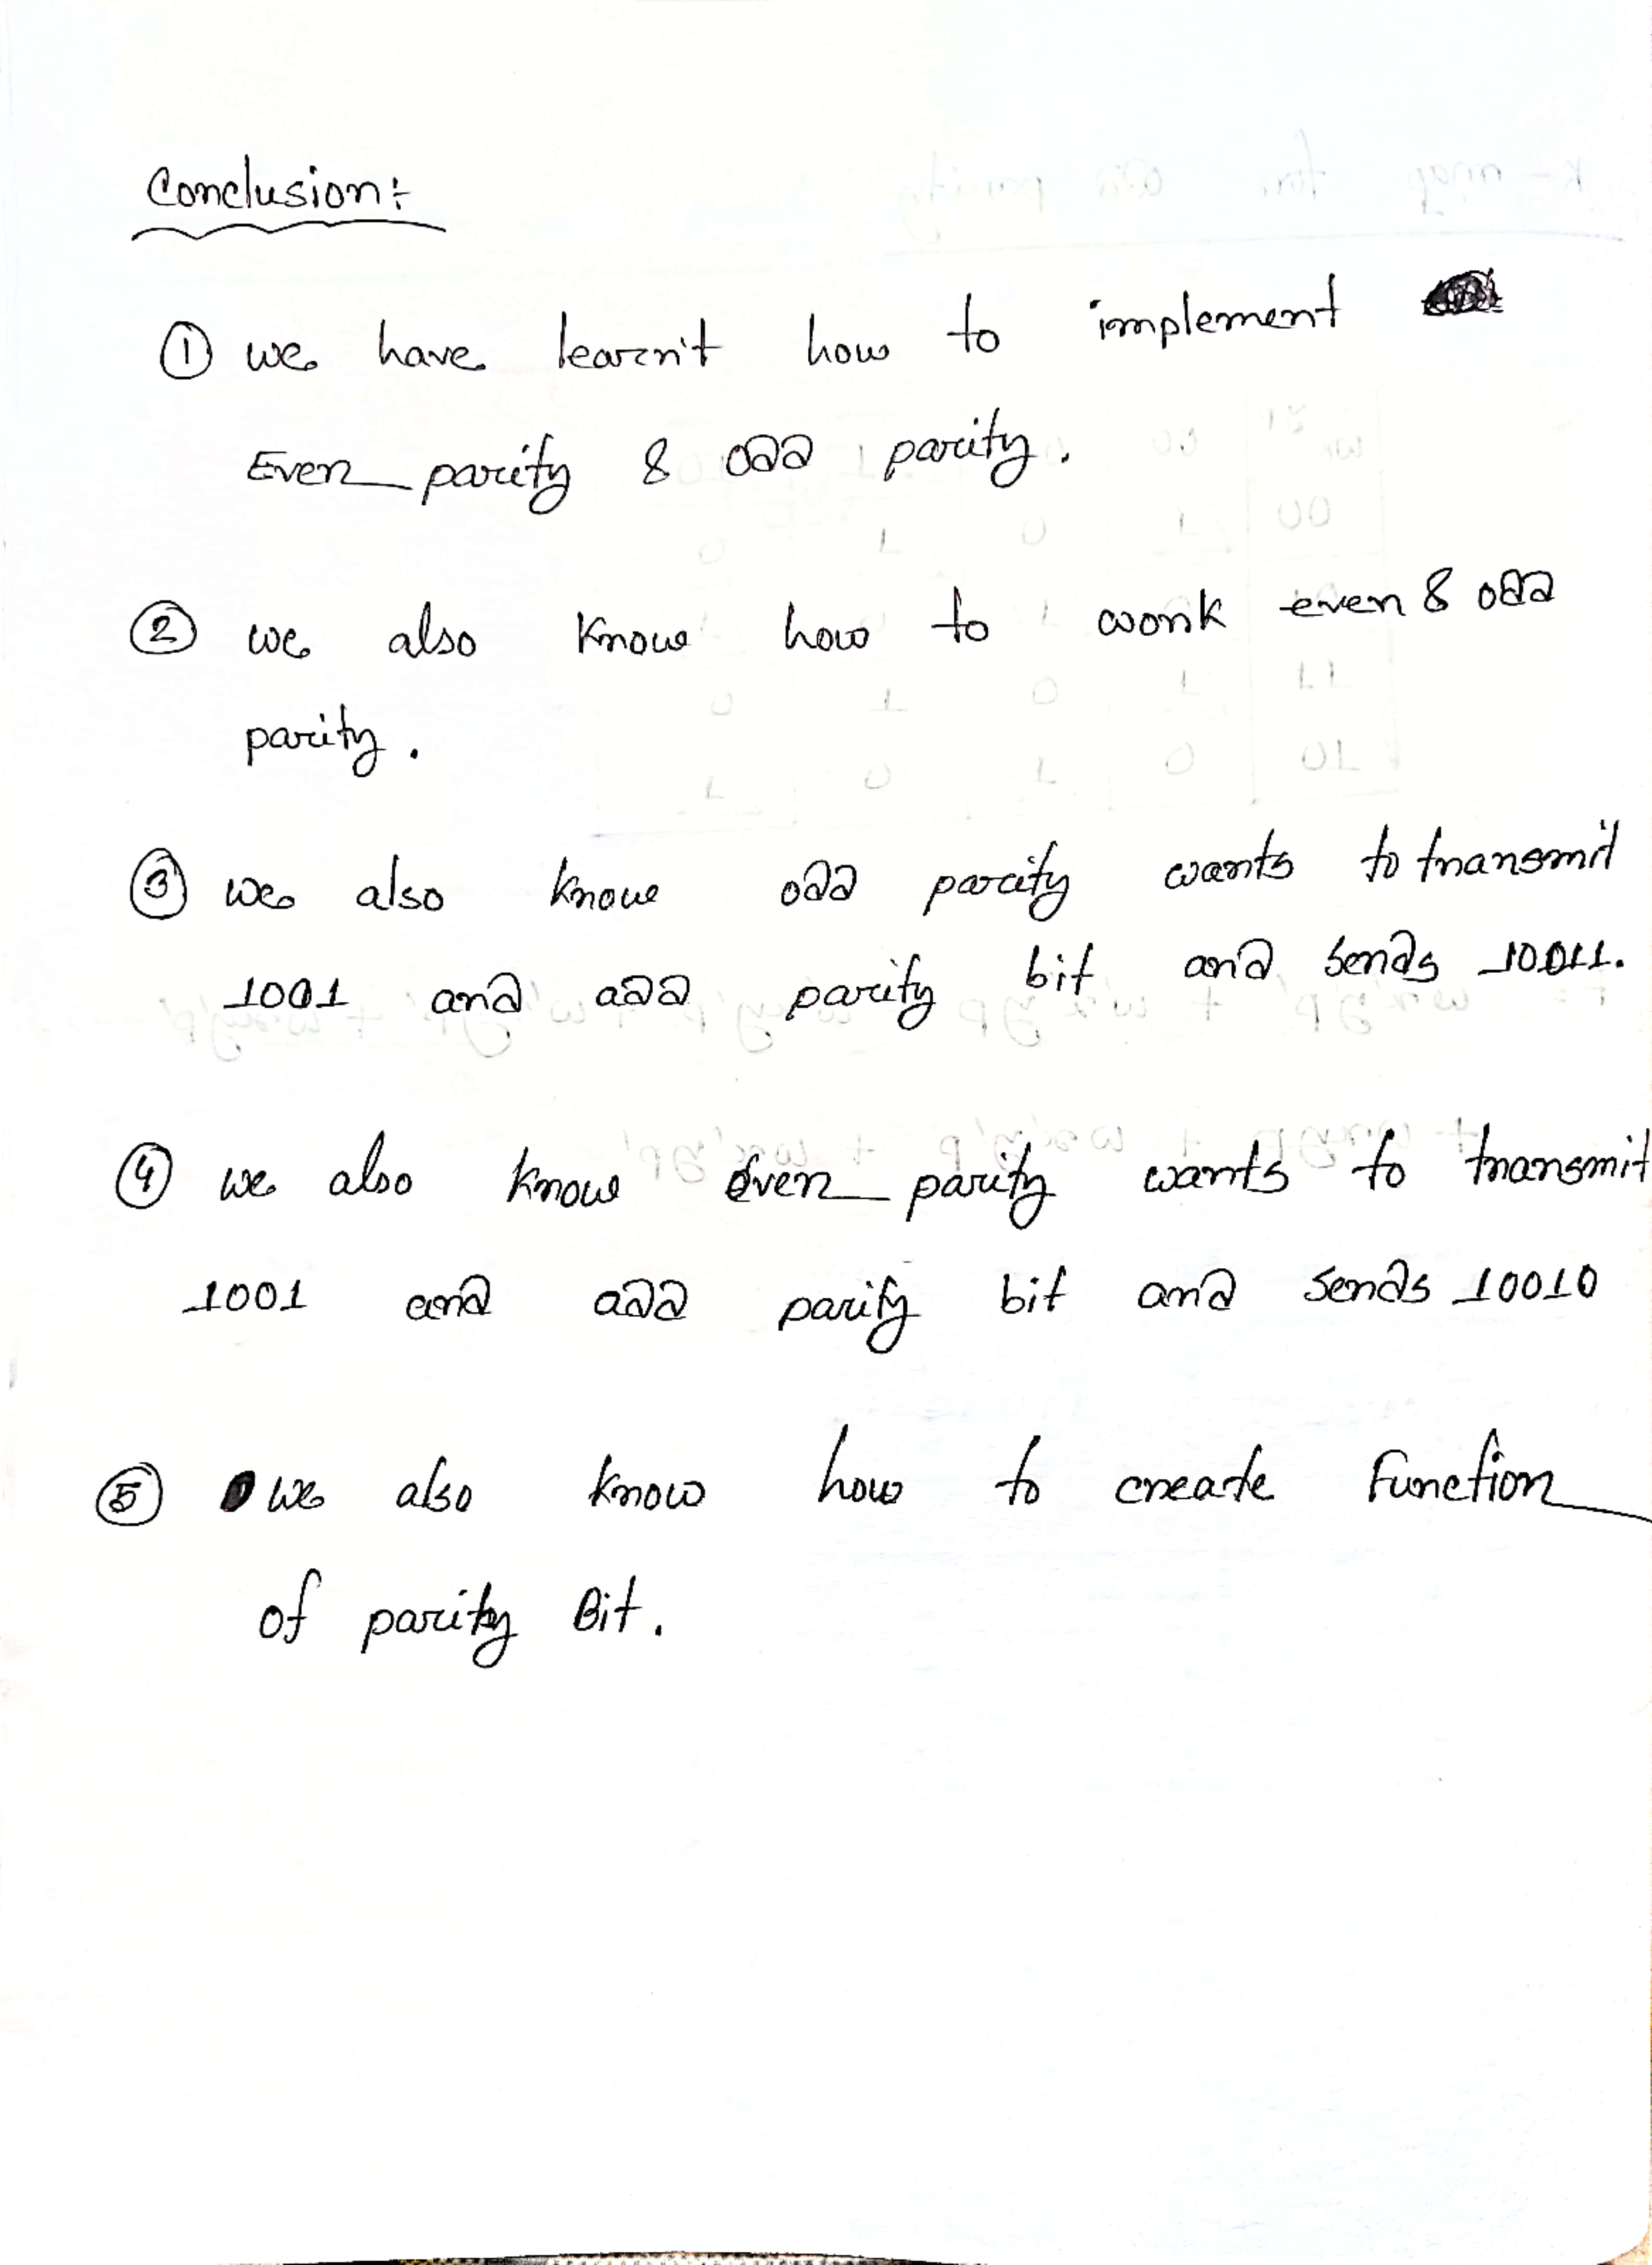 Conclusion:
① we have learn't how to implement
Even parity & odd parity.
② we also know how to work even & odd
parity.
③ we also know odd parity wants to transmit
1001 and add parity bit and sends 10011.
④ we also know Even parity wants to transmit
1001 and add parity bit and sends 10010
⑤ we also know how to create Function
of parity Bit.